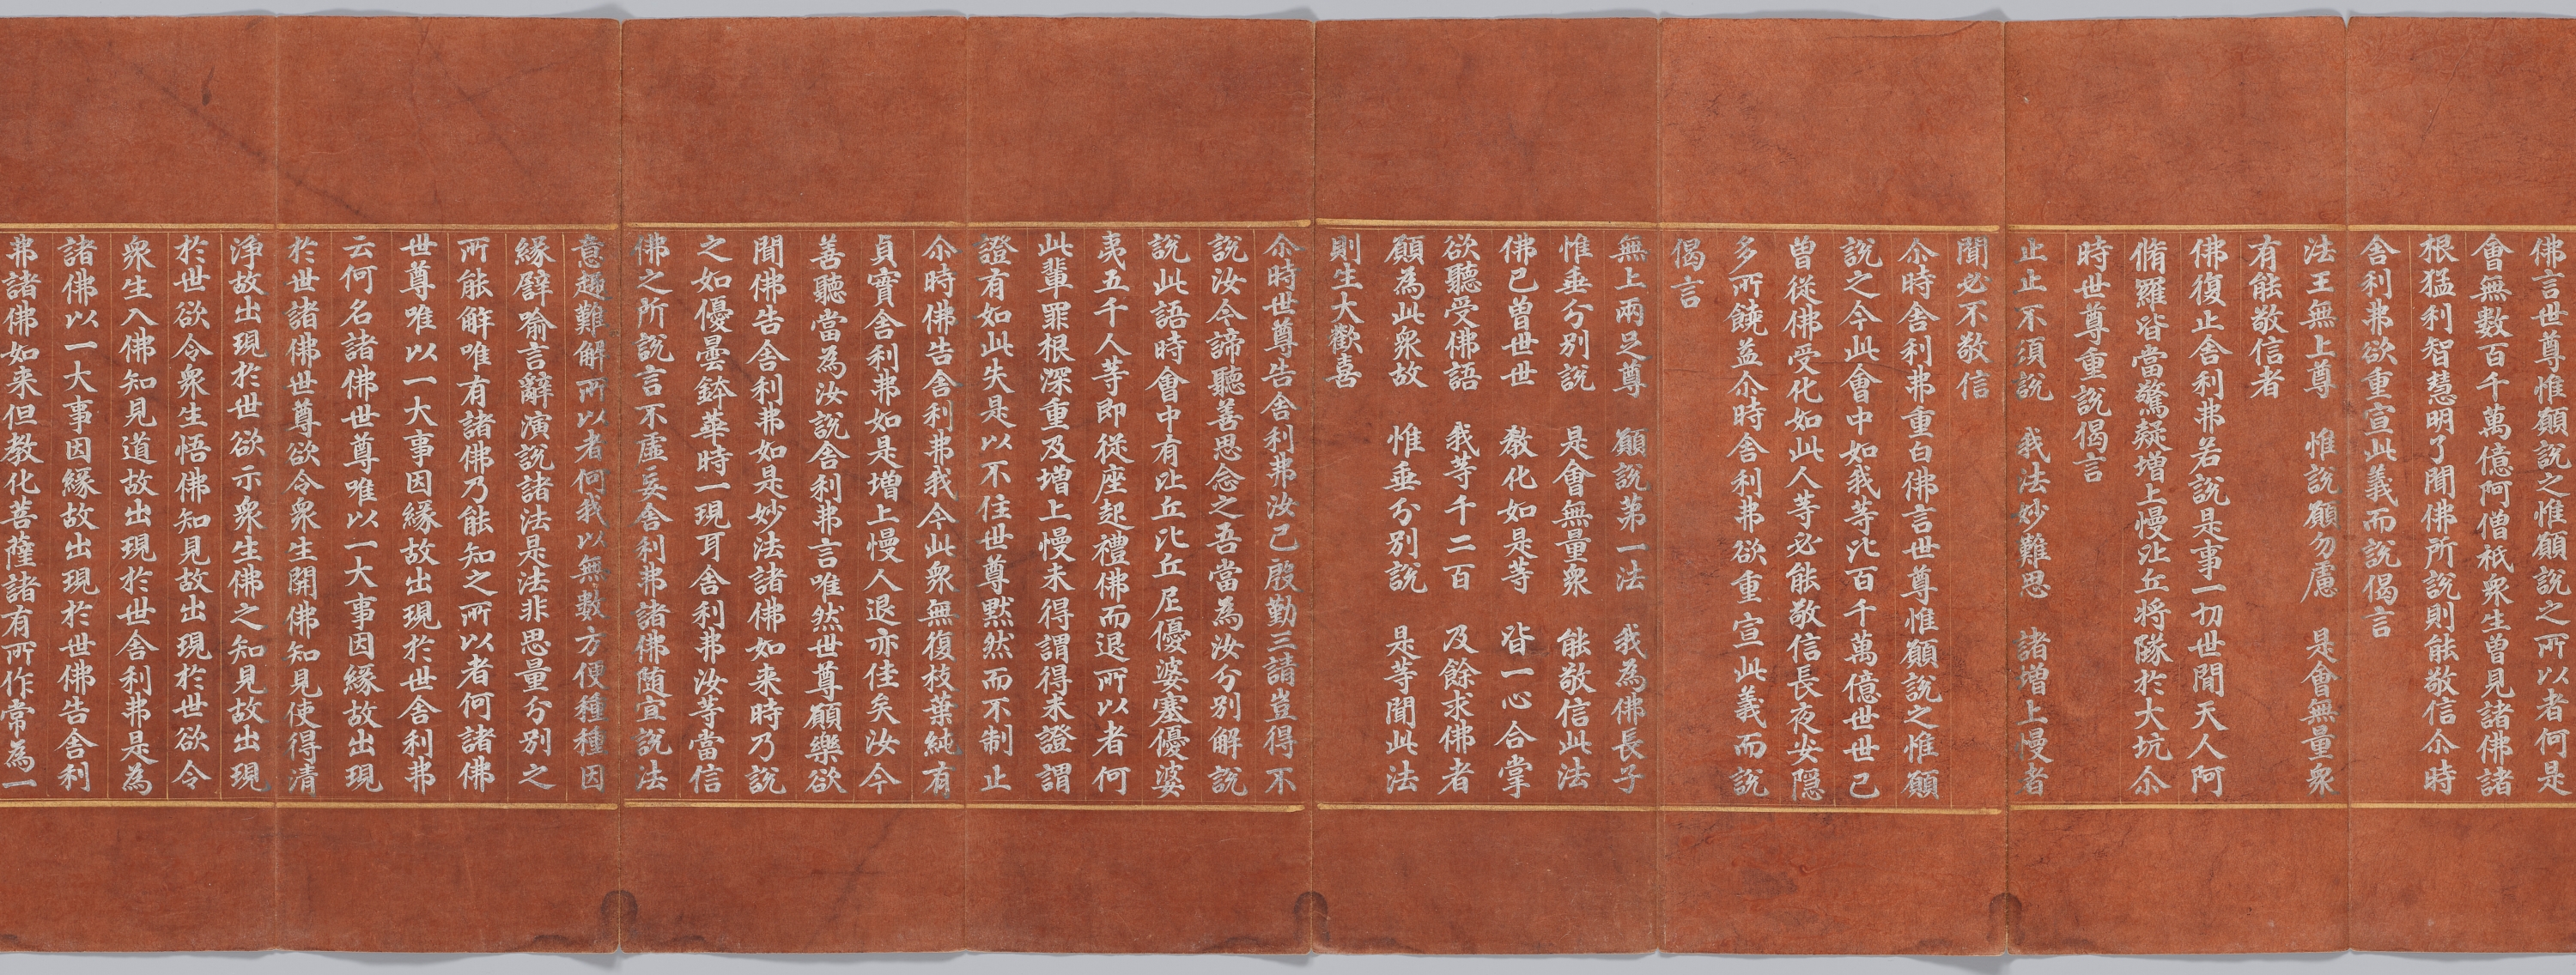 佛言世尊惟願說之惟願說之所以者何是
會無數百千萬億阿僧祇衆生曽見諸佛諸
根猛利智慧明了聞佛所說則能敬信尒時
舍利弗欲重宣此義而說偈言
法王無上尊　惟說願勿慮　是會無量衆
有能敬信者
佛復止舍利弗若說是事一切世閒天人阿
脩羅皆當驚疑増上慢比丘將隊於大坑尒
時世尊重說偈言
止止不須說　我法妙難思　諸増上慢者
聞必不敬信
尒時舍利弗重白佛言世尊惟願說之惟願
說之今此會中如我等比百千萬億世世已
曽從佛受化如此人等必能敬信長夜安隱
多所饒益尒時舍利弗欲重宣此義而說
偈言
無上兩足尊　願說苐一法　我為佛長子
惟垂分別說　是會無量衆　能敬信此法
佛已曽世世　教化如是等　皆一心合掌
欲聽受佛語　我等千二百　及餘求佛者
願為此衆故　惟垂分別說　是等聞此法
則生大歡喜
尒時世尊告舍利弗汝已慇勤三請豈得不
說汝今諦聽善思念之吾當為汝分別解說
說此語時會中有比丘比丘尼優婆塞優婆
夷五千人等即從座起禮佛而退所以者何
此輩罪根深重及増上慢未得謂得未證謂
證有如此失是以不住世尊黙然而不制止
尒時佛告舍利弗我今此衆無復枝葉純有
貞實舍利弗如是増上慢人退亦佳矣汝今
善聽當為汝說舍利弗言唯然世尊願樂欲
聞佛告舍利弗如是妙法諸佛如来時乃說
之如優曇鉢華時一現耳舍利弗汝等當信
佛之所說言不虛妄舍利弗諸佛随宜說法
意趣難解所以者何我以無數方便種種因
緣譬喻言辭演說諸法是法非思量分別之
所能解唯有諸佛乃能知之所以者何諸佛
世尊唯以一大事因緣故出現於世舍利弗
云何名諸佛世尊唯以一大事因緣故出現
於世諸佛世尊欲令衆生開佛知見使得清
淨故出現於世欲示衆生佛之知見故出現
於世欲令衆生悟佛知見故出現於世欲令
衆生入佛知見道故出現於世舍利弗是為
諸佛以一大事因緣故出現於世佛告舍利
弗諸佛如来但教化菩薩諸有所作常為一